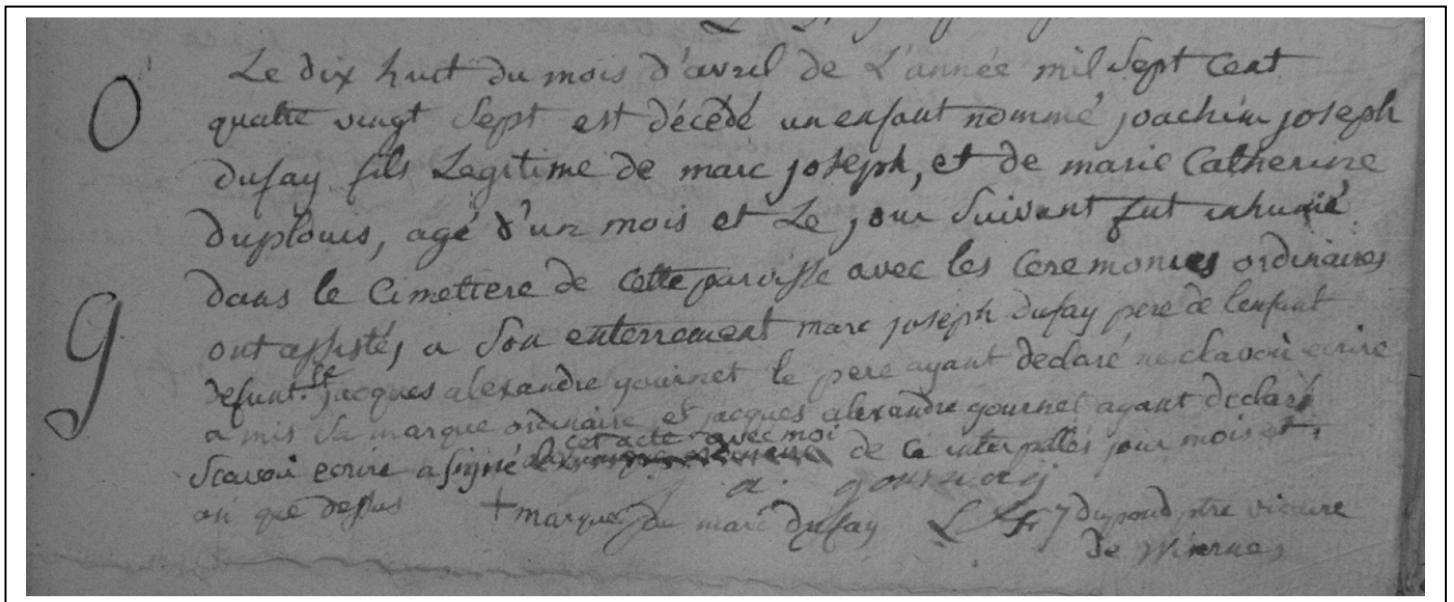 O
Le dix huit du mois d'avril de L'année mil Sept Cent
quatre vingt Sept est décédé un enfant nommé joachim joseph
dufay fils Legitime de marc joseph, et de marie Catherine
duplouis, agé d'un mois et Le jour Suivant fut inhumé
dans le Cimettiere de cette paroisse avec les Ceremonies ordinaires
g
ont assistés a Son enterrement marc joseph dufay pere de l'enfant
defunt. et jacques alexandre gournet le pere ayant declaré ne scavoir ecrire
a mis Sa marque ordinaire et jacques alexandre gournet ayant declaré
Scavoir ecrire a signé cet acte avec moi de ce interpellés jour mois et
an que dessus
a. gournay
+ marque de marc dufay dupond ptre vicaire
de